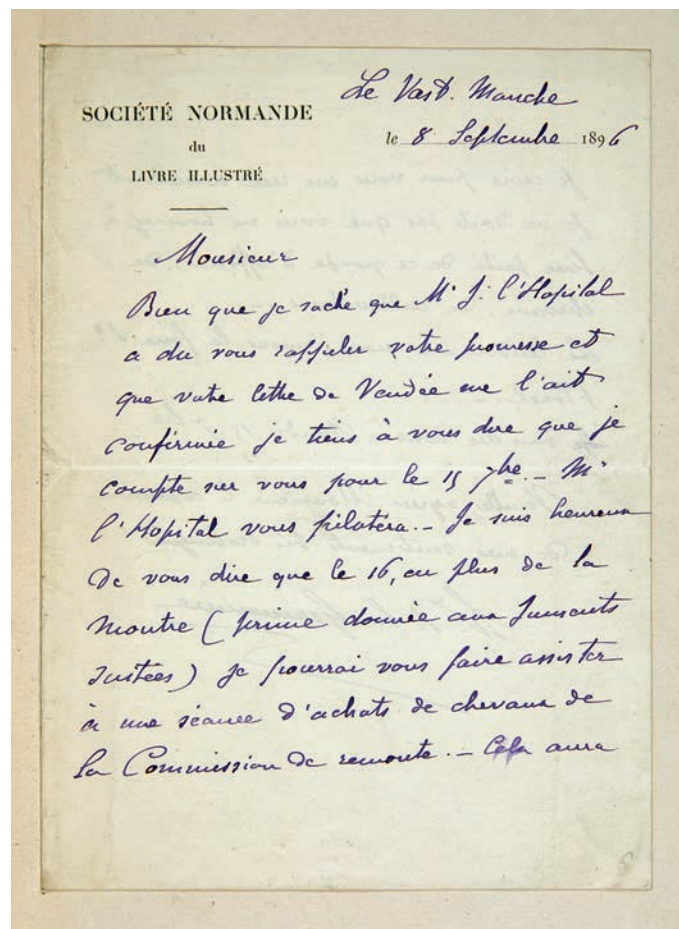 SOCIÉTÉ NORMANDE
du
LIVRE ILLUSTRÉ
Le Vast. Manche
le 8 Septembre 1896
Monsieur
Bien que je sache que Mr J. l'Hopital
a du vous rappeler votre promesse et
que votre lettre de Vendée me l'ait
confirmée je tiens à vous dire que je
compte sur vous pour le 15 7bre. – Mr
l'Hopital vous pilotera. – Je suis heureux
de vous dire que le 16, en plus de la
montre (prime donnée aux Juments
Suitées) je pourrai vous faire assister
à une séance d'achats de chevaux de
la Commission de remonte. – Cela aura